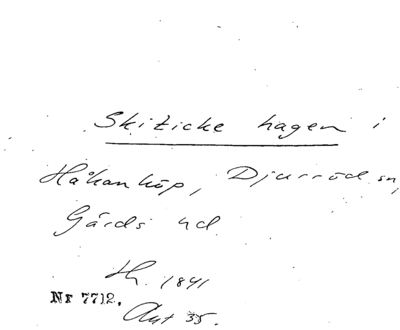 Skiticke hagen i
Håkanköp, Djurröd sn,
Gärds hd.
Th. 1841
Nr 7712.
Aut 35.